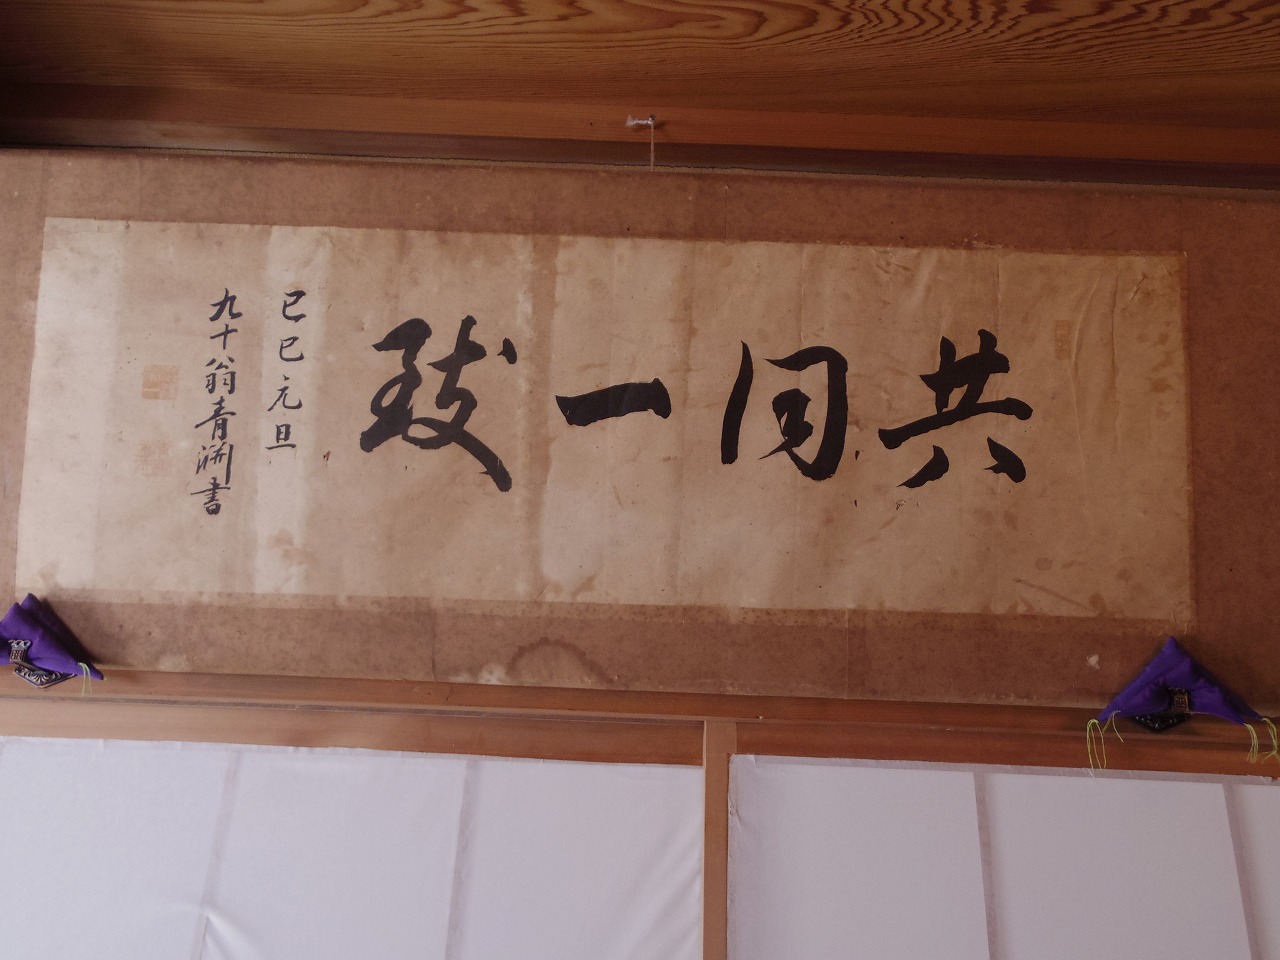 共同一致
己巳元旦
九十翁青淵書